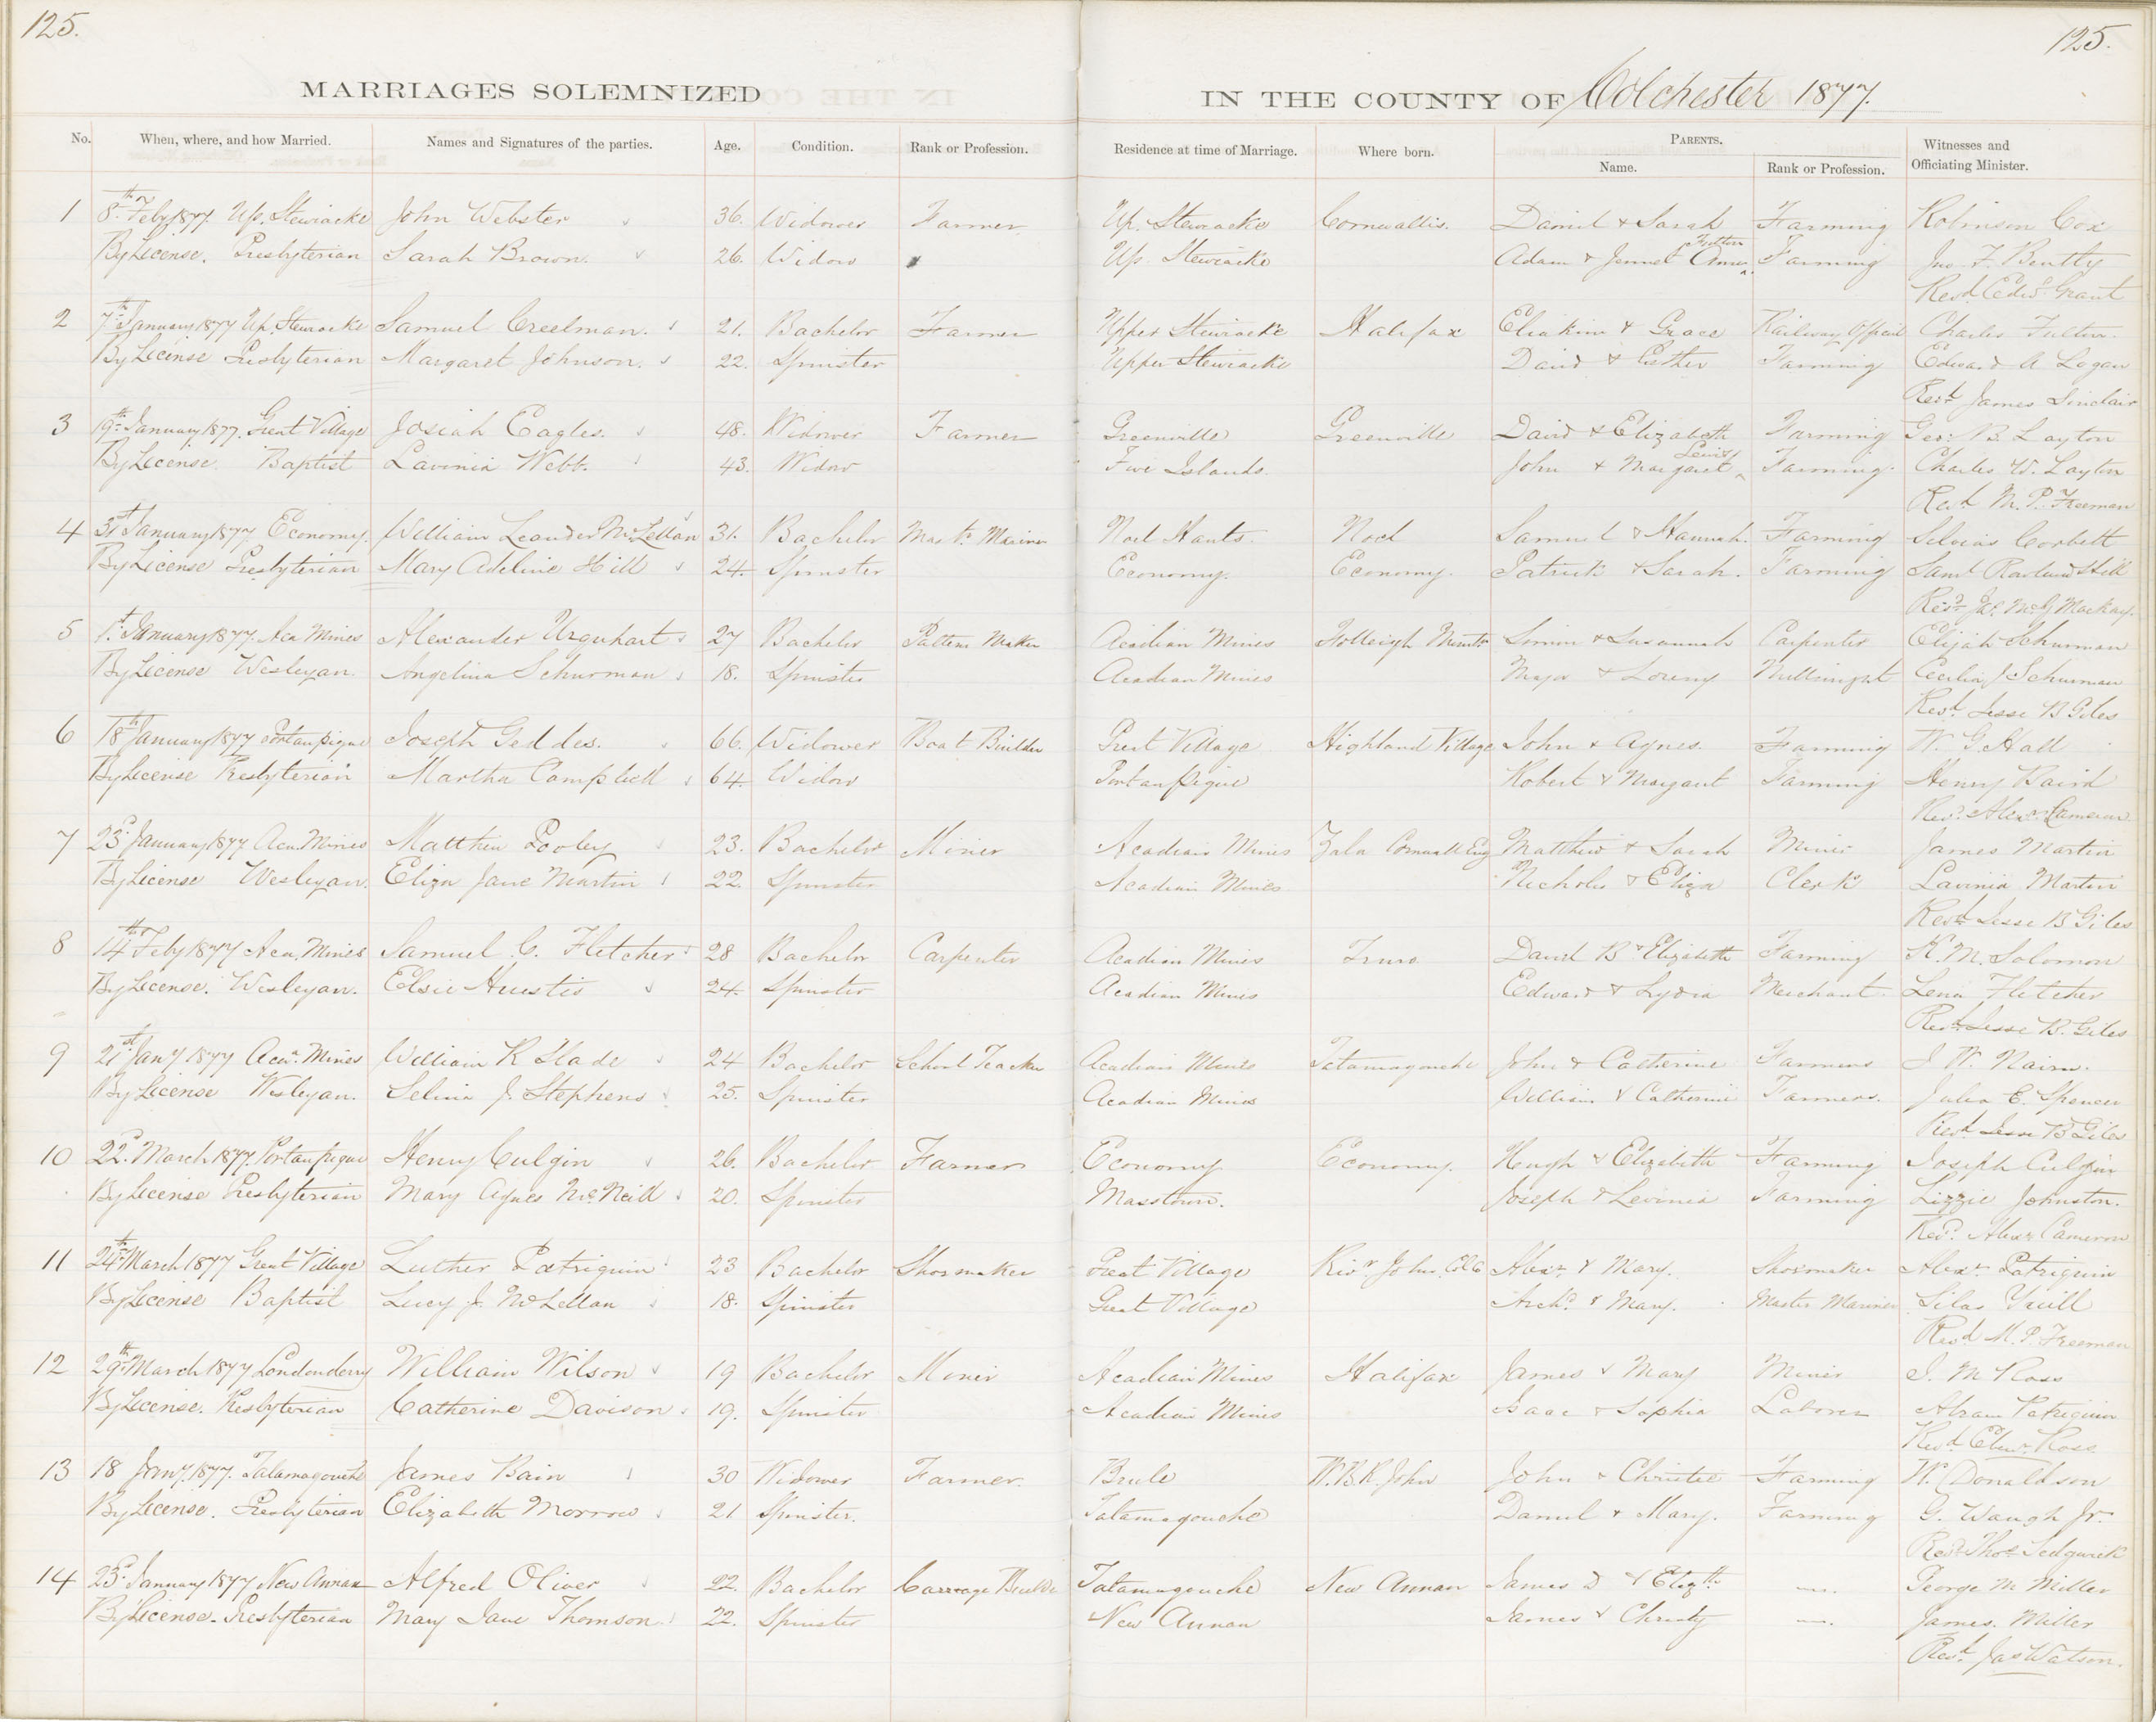 125.
125.
MARRIAGES SOLEMNIZED
IN THE COUNTY OF Colchester 1877.
No. When, where, and how Married. Names and Signatures of the parties. Age. Condition. Rank or Profession. Residence at time of Marriage. Where born. PARENTS. Name. Rank or Profession. Witnesses and Officiating Minister.
1 8th Feby 1877 Up. Stewiacke John Webster 36. Widower Farmer. Up. Stewiacke Cornwallis. Daniel & Sarah Farming Robinson Cox
By License. Presbyterian Sarah Brown. 26. Widow Up. Stewiacke Adam & Jennet Fulton Farming Jno. F. Bently
Revd. Edwd. Grant
2 7th January 1877 Up. Stewiacke Samuel Creelman. 21. Bachelor Farmer Upper Stewiacke Halifax Eliakim & Grace Railway Official Charles Fulton.
By License Presbyterian Margaret Johnson. 22. Spinster Upper Stewiacke David & Esther Farming Edward A Logan
Revd. James Sinclair
3 19th January 1877. Great Village Josiah Eagles. 48. Widower Farmer Greenville Greenville David & Elizabeth Farming Geo: B. Layton
By License. Baptist Lavinia Webb. 43. Widow Five Islands. John & Margaret Lewis Farming. Charles W. Layton
Revd. M. P. Freeman
4 31st January 1877 Economy. William Leander McLellan 31. Bachelor Mastr. Mariner Noel Hants. Noel Samuel & Hannah. Farming Silvias Corbett
By License Presbyterian Mary Adeline Hill 24. Spinster Economy. Economy. Patrick & Sarah. Farming Saml Rowland Hill
Revd. Jas. McG Mackay.
5 1st. January 1877. Aca Mines Alexander Urquhart 27 Bachelor Pattern Maker Acadian Mines Simon & Susannah Carpenter Elijah Schurman
By License Wesleyan. Angelina Schurman 18. Spinster Acadian Mines Major & Millwright Cecilia J Schurman
Revd. Jesse B Giles
6 18th January 1877 Portaupique Joseph Geddes. 66. Widower Boat Builder Great Village Highland Village John & Agnes. Farming W. G. Hall
By License Presbyterian Martha Campbell 64. Widow Portaupique Robert & Margaret Farming Henry Baird
Revd. Alexr. Cameron
7 23d January 1877 Aca. Mines Matthew Pooley 23. Bachelor Miner Acadian Mines Cornwall Eng Matthew & Sarah Miner James Martin
By License Wesleyan. Eliza Jane Martin 22. Spinster Acadian Mines Nicholas & Eliza Clerk Lavinia Martin
Revd. Jesse B Giles
8 14th Feby 1877 Aca. Mines Samuel G. Fletcher 28 Bachelor Carpenter Acadian Mines Truro David B & Elizabeth Farming K. M. Solomon
By License. Wesleyan. Elsie Huestis 24. Spinster Acadian Mines Edward & Lydia Merchant. Lena Fletcher
Revd. Jesse B. Giles
9 21st Jany 1877 Aca. Mines William R Slade 24 Bachelor School Teacher Acadian Mines Tatamagouche John & Catherine Farmers J. W. Nairn.
By License Wesleyan. Selina J. Stephens 25. Spinster Acadian Mines William & Catherine Farmers. Julia E. Spencer
Revd. Jesse B Giles
10 22d. March 1877. Portaupique Henry Culgin 26. Bachelor Farmer Economy Economy. Hugh & Elizabeth Farming Joseph Culgin
By License Presbyterian Mary Agnes McNeill 20. Spinster Masstown. Joseph & Levinia Farming Lizzie Johnston.
Revd. Alexr Cameron
11 24th March 1877 Great Village Luther Patriquin 23 Bachelor Shoemaker Great Village Rivr John. Col Co Alexr. & Mary. Shoemaker Alexr. Patriquin
By License Baptist Lucy J. McLellan 18. Spinster Great Village Archd. & Mary. Master Mariner Silas Yuill
Revd. M. P. Freeman
12 29th March 1877 Londonderry William Wilson 19 Bachelor Miner Acadian Mines Halifax James & Mary Miner J. M Ross
By License. Presbyterian Catherine Davison 19. Spinster Acadian Mines Isaac & Sophia Laborer Abram Patriquin
Revd. Ebenr. Ross
13 18 Jany. 1877. Tatamagouche James Bain 30 Widower Farmer. Brule W. B. R. John John & Christie Farming W. Donaldson
By License. Presbyterian Elizabeth Morrow 21 Spinster. Tatamagouche Daniel & Mary. Farming G. Waugh Jr.
Revd. Thos. Sedgwick
14 23d. January 1877 New Annan Alfred Oliver 22. Bachelor Carriage Builder Tatamagouche New Annan James D & Elizth —. George M Miller
By License. Presbyterian Mary Jane Thomson. 22. Spinster New Annan James & Christy —. James. Miller
Revd. Jas Watson.